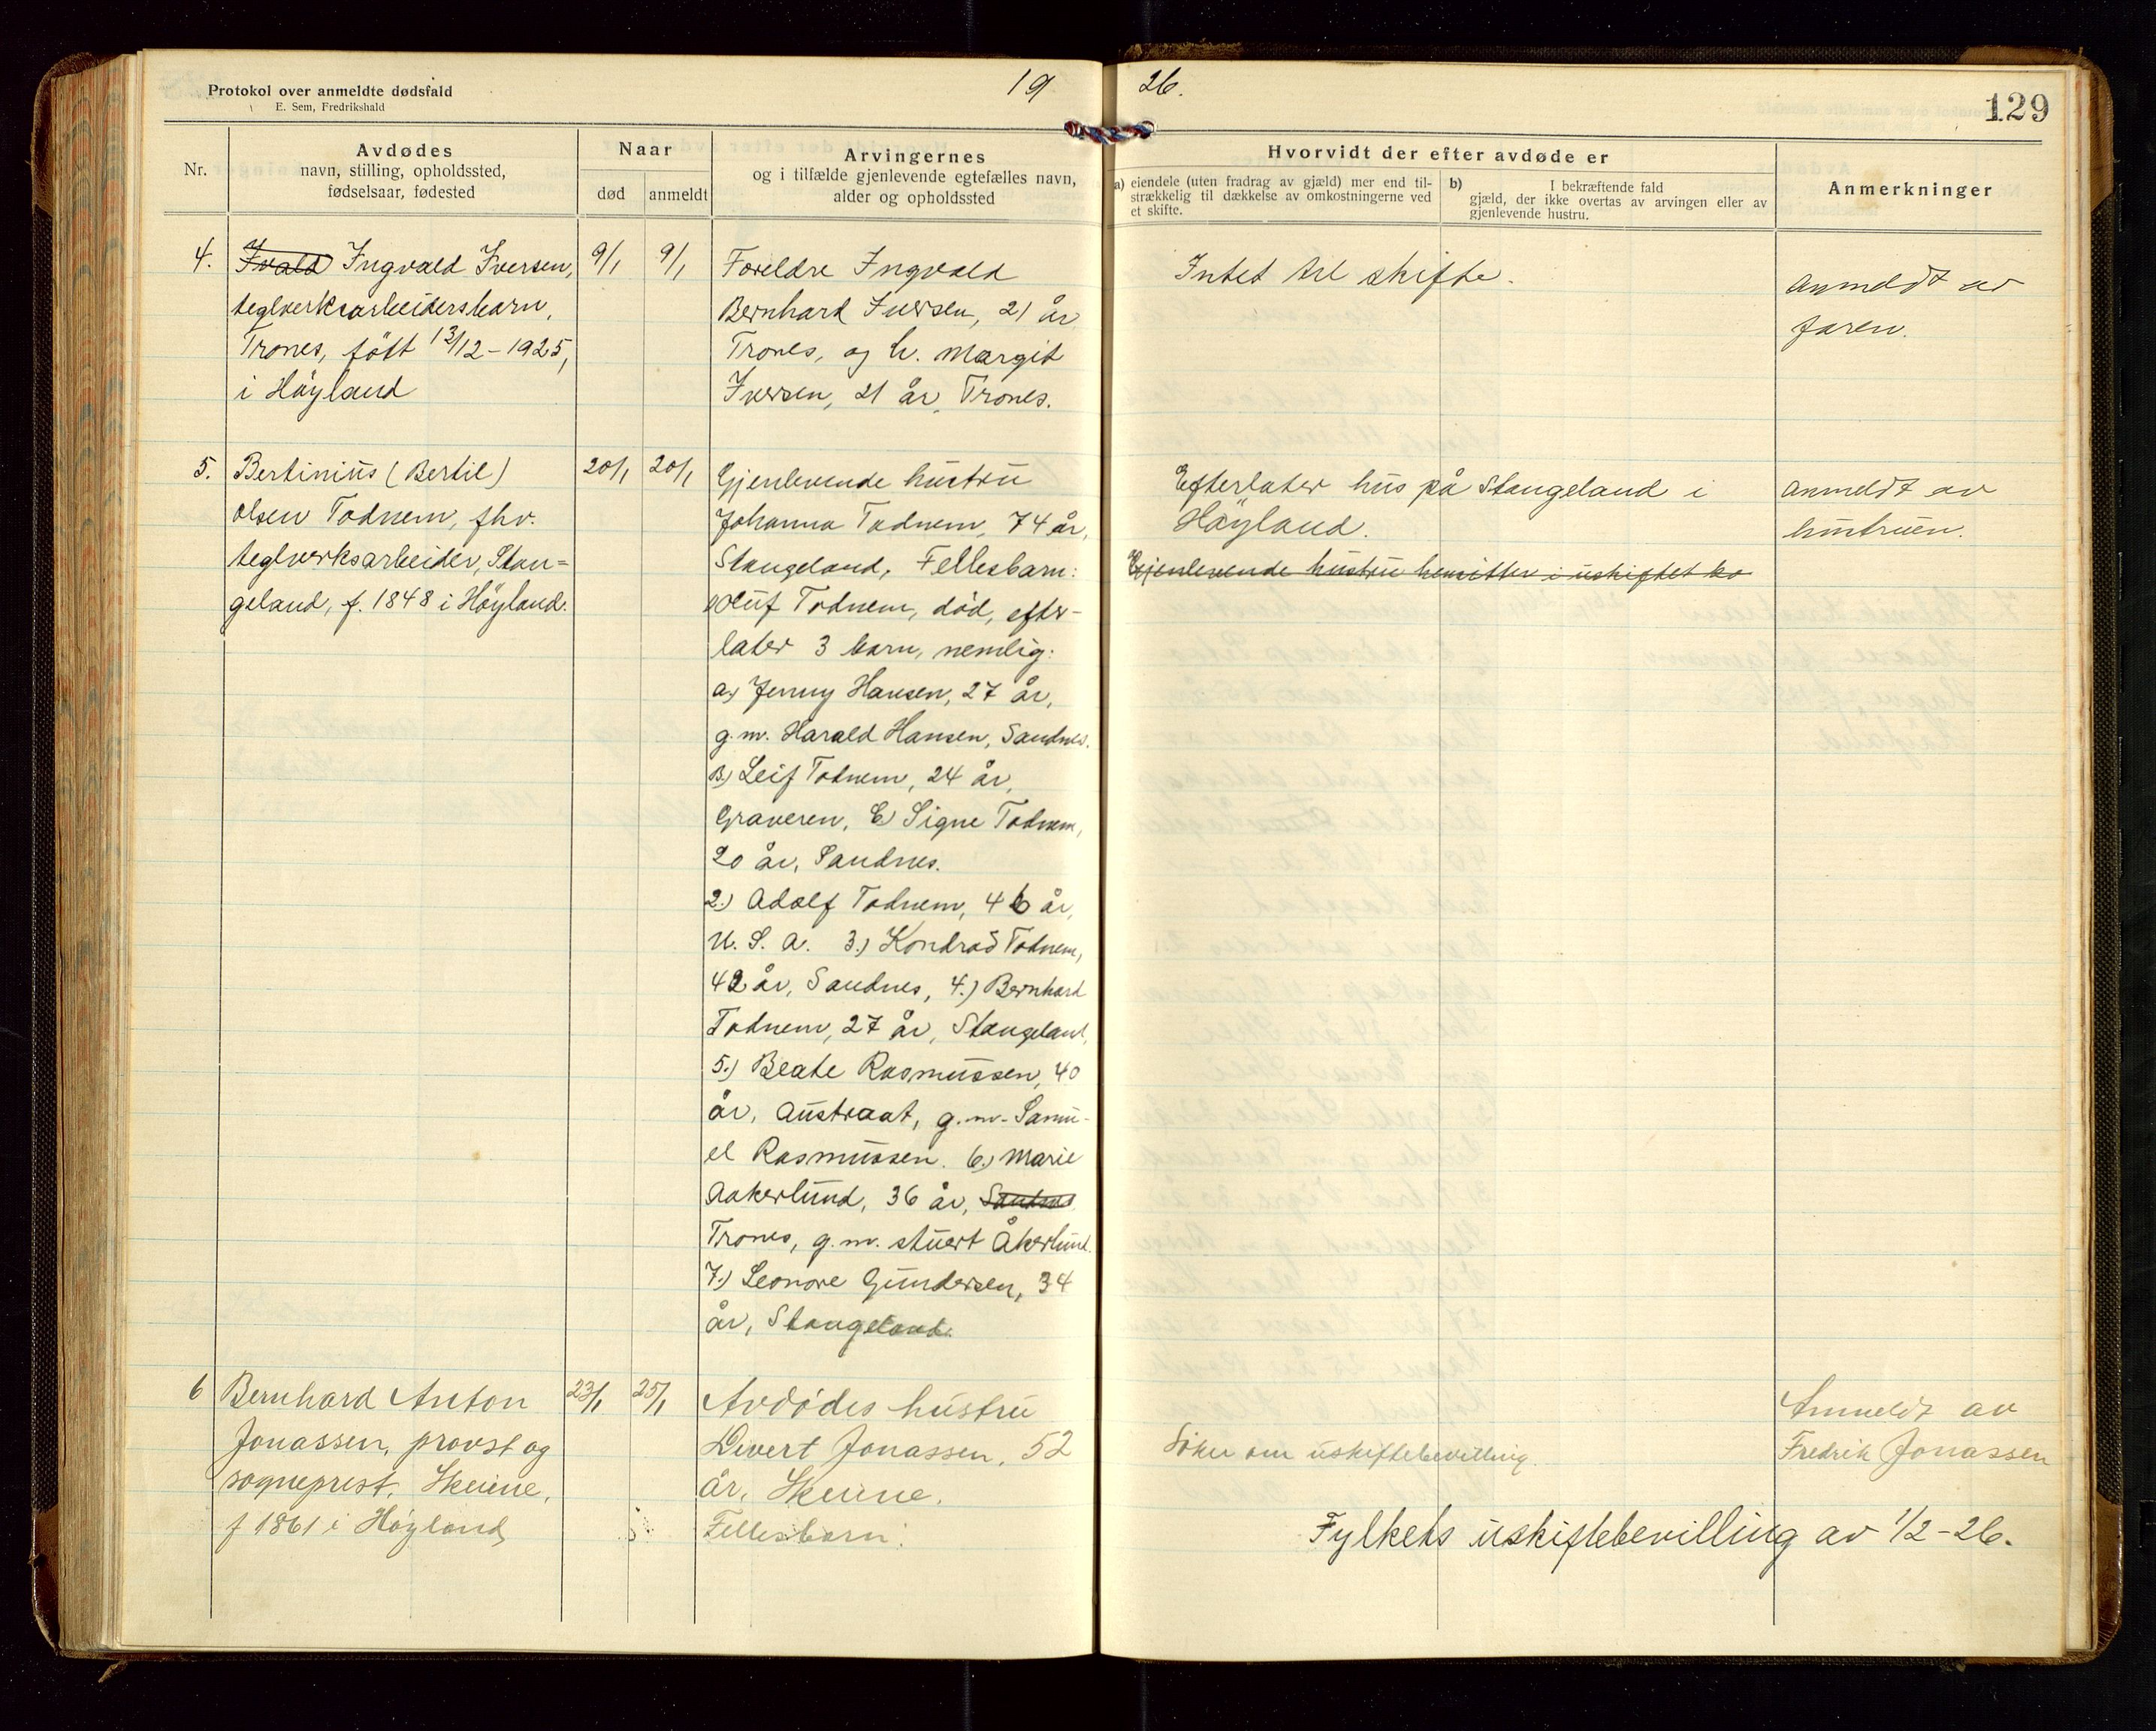 Protokol over anmeldte dødsfald
E. Sem, Fredrikshald
19 26.
129
Nr.
Avdødes
navn, stilling, opholdssted,
fødselsaar, fødested
Naar
død
anmeldt
Arvingernes
og i tilfælde gjenlevende egtefælles navn,
alder og opholdssted
Hvorvidt der efter avdøde er
a) eiendele (uten fradrag av gjæld) mer end til-
strækkelig til dækkelse av omkostningerne ved
et skifte.
b) I bekræftende fald
gjæld, der ikke overtas av arvingen eller av
gjenlevende hustru.
Anmerkninger
4.
Ivald Ingvald Iversen,
teglverksarbeidersbarn,
Trones, født 13/12-1925,
i Høyland
9/1
9/1
Foreldre Ingvald
Bernhard Iversen, 21 år
Trones, og h. Margit
Iversen, 21 år, Trones.
Intet til skifte.
Anmeldt av
faren.
5.
Bertinius (Bertil)
Olsen Todnem, fhv.
teglverksarbeider, Stan=
geland, f. 1848 i Høyland.
20/1
20/1
Gjenlevende hustru
Johanna Todnem, 74 år,
Stangeland, Fellesbarn:
1) Oluf Todnem, død, efter-
later 3 barn, nemlig:
a) Jenny Hansen, 27 år,
g.m. Harald Hansen, Sandnes.
B) Leif Todnem, 24 år,
Graveren, C) Signe Todnem,
20 år, Sandnes.
2.) Adolf Todnem, 46 år,
U. S. A. 3.) Kondrad Todnem,
42 år, Sandnes, 4.) Bernhard
Todnem, 27 år, Stangeland,
5.) Beate Rasmussen, 40
år, Austraat, g.m. Samu-
el Rasmussen. 6.) Marie
Aakerlund, 36 år, Sandnes
Trones, g.m. stuert Åkerlund.
7.) Leonore Gundersen, 34
år, Stangeland.
Efterlater hus på Stangeland i
Høyland.
Gjenlevende hustru hensitter i uskiftet bo
Anmeldt av
hustruen.
6
Bernhard Anton
Jonassen, provst og
sogneprest, Skeiene,
f 1861 i Høyland,
23/1
25/1
Avdødes hustru
Divert Jonassen, 52
år, Skeiene.
Fellesbarn:
Søker om uskiftebevilling.
Anmeldt av
Fredrik Jonassen
Fylkets uskiftebevilling av 1/2-26.